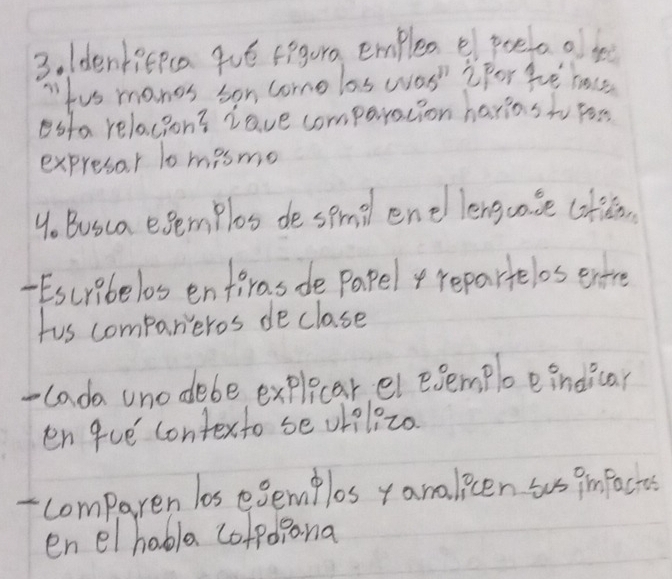 3. Identifica qué figura emplea el poeta al
"tus manos son como las uvas" ¿Por qué hace
esta relación? ¿Que comparación harías tu para
expresar lo mismo
4. Busca ejemplos de simil en el lenguaje
-Escribelos en tiras de papel y repartelos entre
tus compañeros de clase
-Cada uno debe explicar el ejemplo e indicar
en qué contexto se utiliza
-comparen los ejemplos y analicen sus impactos
en el habla cotidiana